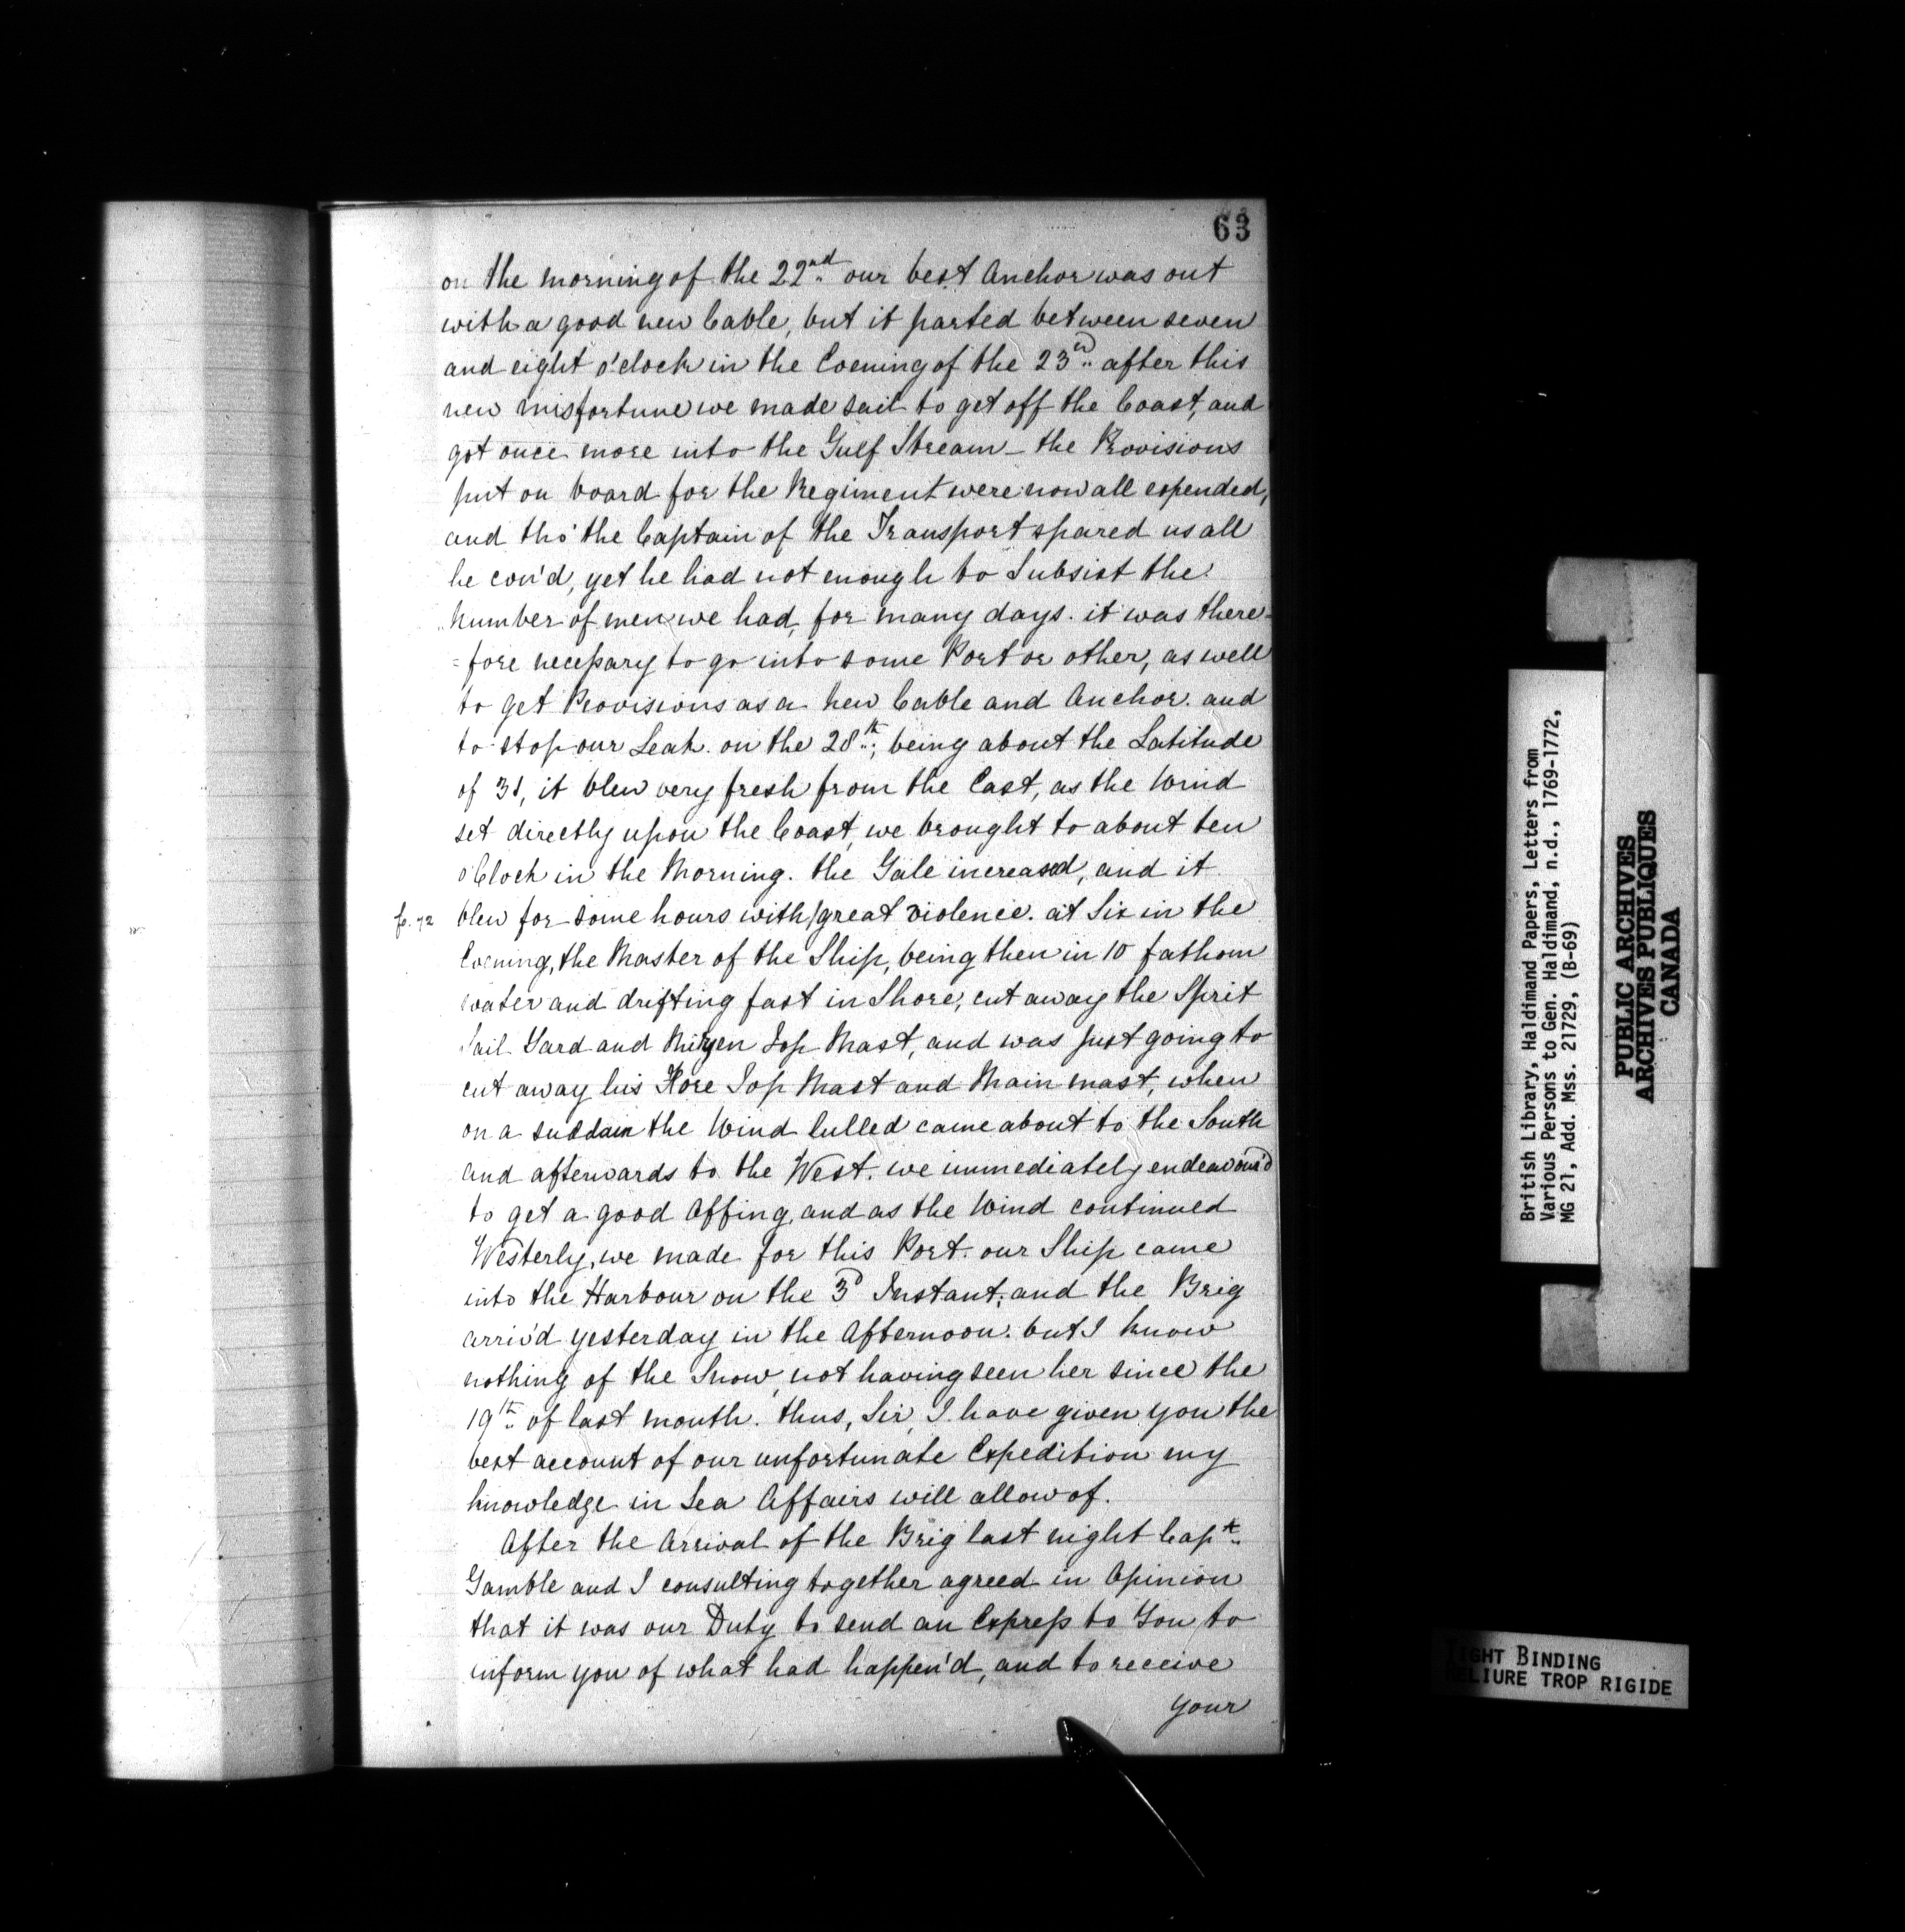 63
on the morning of the 22nd our best Anchor was out
with a good new Cable, but it parted between seven
and eight o'clock in the Evening of the 23d after this
new misfortune we made sail to get off the Coast, and
got once more into the Gulf Stream_ the Provisions
put on board for the Regiment were now all expended,
and tho' the Captain of the Transport spared us all
he cou'd, yet he had not enough to Subsist the
number of men we had, for many days. it was there-
=fore necessary to go into some Port or other, as well
to get Provisions as a new Cable and Anchor. and
to stop our Leak. on the 28th; being about the Latitude
of 31, it blew very fresh from the East, as the Wind
set directly upon the Coast, we brought to about ten
o'Clock in the Morning. the Gale increased, and it
f. 72 blew for some hours with/great violence. at Six in the
Evening, the Master of the Ship, being then in 10 fathom
water and drifting fast in Shore, cut away the Sprit
Sail Yard and Mizen Top Mast, and was just going to
cut away his Fore Top Mast and Main mast, when
on a suddain the Wind lulled came about to the South
and afterwards to the West. we immediately endeavour'd
to get a good Offing, and as the Wind continued
Westerly, we made for this Port. our Ship came
into the Harbour on the 3d Instant; and the Brig
arriv'd yesterday in the Afternoon. but I know
nothing of the Snow, not having seen her since the
19th of last month. thus, Sir, I have given you the
best account of our unfortunate Expedition my
knowledge in Sea Affairs will allow of.
After the Arrival of the Brig last night Capt
Gamble and I consulting together agreed in Opinion
that it was our Duty to send an Express to You to
inform you of what had happen'd, and to receive
your
British Library, Haldimand Papers, Letters from
Various Persons to Gen. Haldimand, n.d., 1769-1772,
MG 21, Add. Mss. 21729, (B-69)
PUBLIC ARCHIVES
ARCHIVES PUBLIQUES
CANADA
TIGHT BINDING
RELIURE TROP RIGIDE